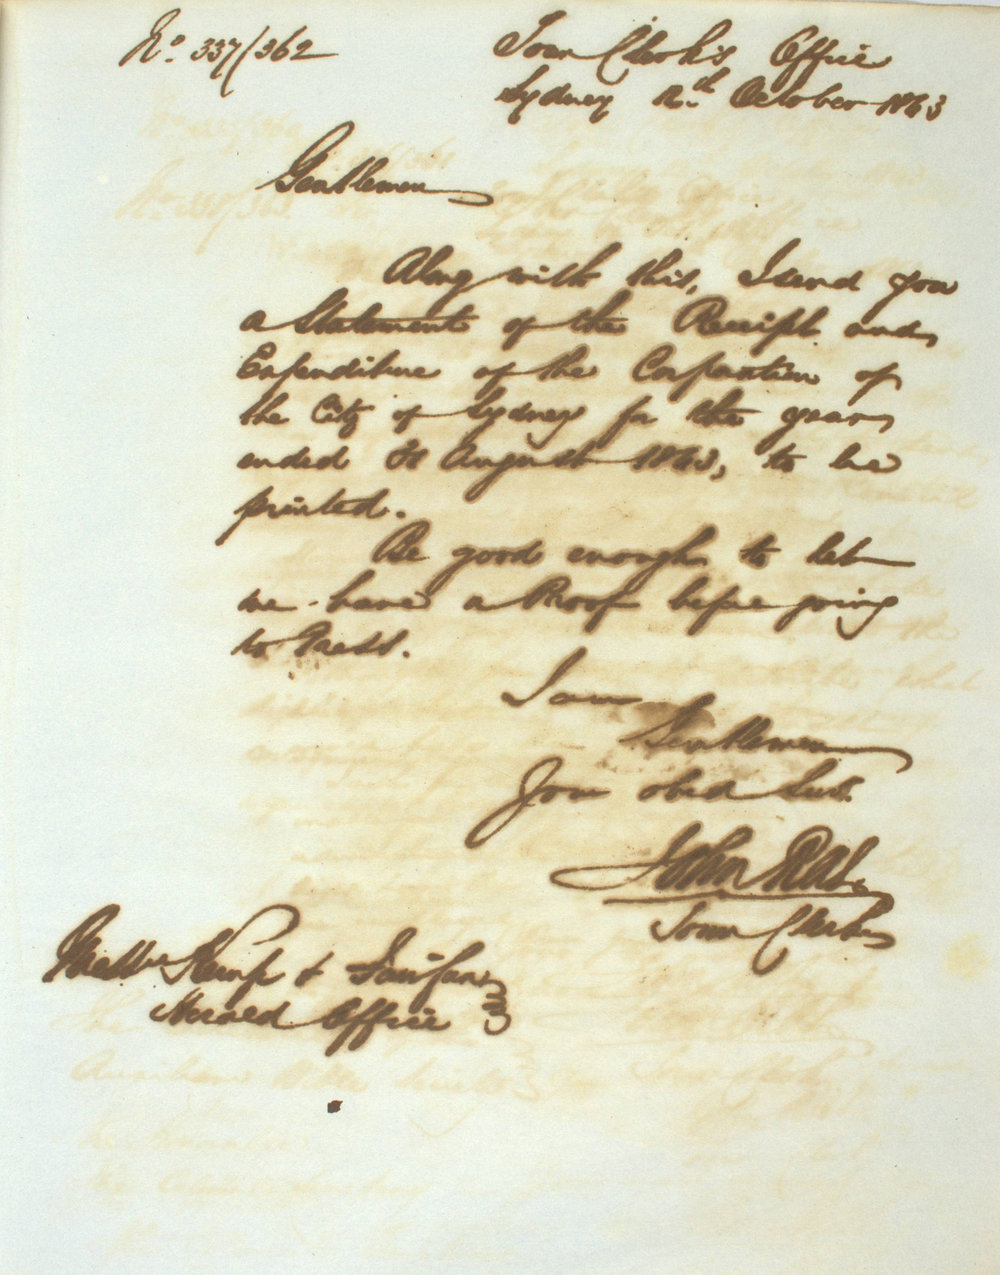 No. 337/362
Town Clerk's Office
Sydney 12th October 1863
Gentlemen
Along with this, I send you
a Statement of the Receipt and
Expenditure of the Corporation of
the City of Sydney for the year
ended 31 August 1863, to be
printed.
Be good enough to let
me have a Proof before going
to Press.
I am
Gentlemen
Your obed Servt.
John Rae
Town Clerk
Messrs Kemp & Fairfax
Herald Office